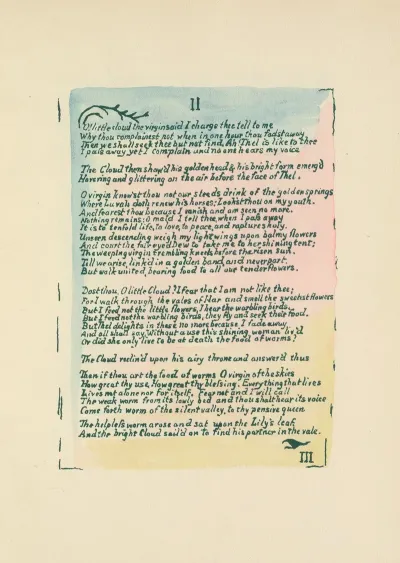 II
O little cloud the virgin said I charge thee tell to me
Why thou complainest not when in one hour thou fadst away
Then we shall seek thee but not find, Ah Thel is like to thee
I pass away yet I complain and no one hears my voice
The Cloud then shew'd his golden head & his bright form emerg'd
Hovering and glittering on the air before the face of Thel.
O virgin knowst thou not our steeds drink of the golden springs
Where Luvah doth renew his horses; Lookst thou on my youth.
And fearest thou because I vanish and am seen no more.
Nothing remains; O maid I tell thee, when I pass away
It is to tenfold life, to love, to peace, and raptures holy.
Unseen descending weigh my light wings upon balmy flowers
And court the fair eyed Dew to take me to her shining tent;
The weeping virgin trembling kneels before the risen sun.
Till we arise, link'd in a golden band and never part.
But walk united, bearing food to all our tender flowers.
Dost thou, O little Cloud? I fear that I am not like thee;
For I walk through the vales of Har and smell the sweetest flowers
But I feed not the little flowers, I hear the warbling birds
But I feed not the warbling birds, they fly and seek their food.
But Thel delights in these no more because I fade away
And all shall say, Without a use this shining woman liv'd
Or did she only live to be at death the food of worms?
The Cloud reclin'd upon his airy throne and answer'd thus
Then if thou art the food of worms O virgin of the skies
How great thy use, How great thy blessing. Everything that lives
Lives not alone nor for itself. Fear not and I will call
The weak worm from its lowly bed and thou shalt hear its voice
Come forth worm of the silent valley, to thy pensive queen
The helpless worm arose and sat upon the Lily's leaf
And the bright Cloud sail'd on to find his partner in the vale.
III